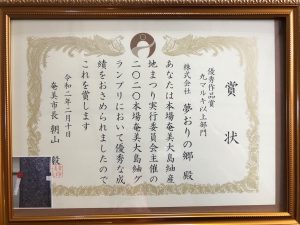 賞状
優秀作品賞
九マルキ以上部門
株式会社 夢おりの郷 殿
あなたは本場奄美大島紬産
地まつり実行委員会主催の
二〇二〇本場奄美大島紬グ
ランプリにおいて優秀な成
績をおさめられましたので
これを賞します
令和二年二月十日
奄美市長 朝山 毅